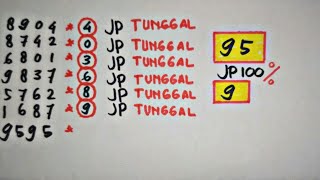 8904 * 4 JP TUNGGAL
8742 * 0 JP TUNGGAL
6801 * 3 JP TUNGGAL
9837 * 6 JP TUNGGAL
5762 * 8 JP TUNGGAL
1687 * 9 JP TUNGGAL
9595 *
95
JP 100%
9